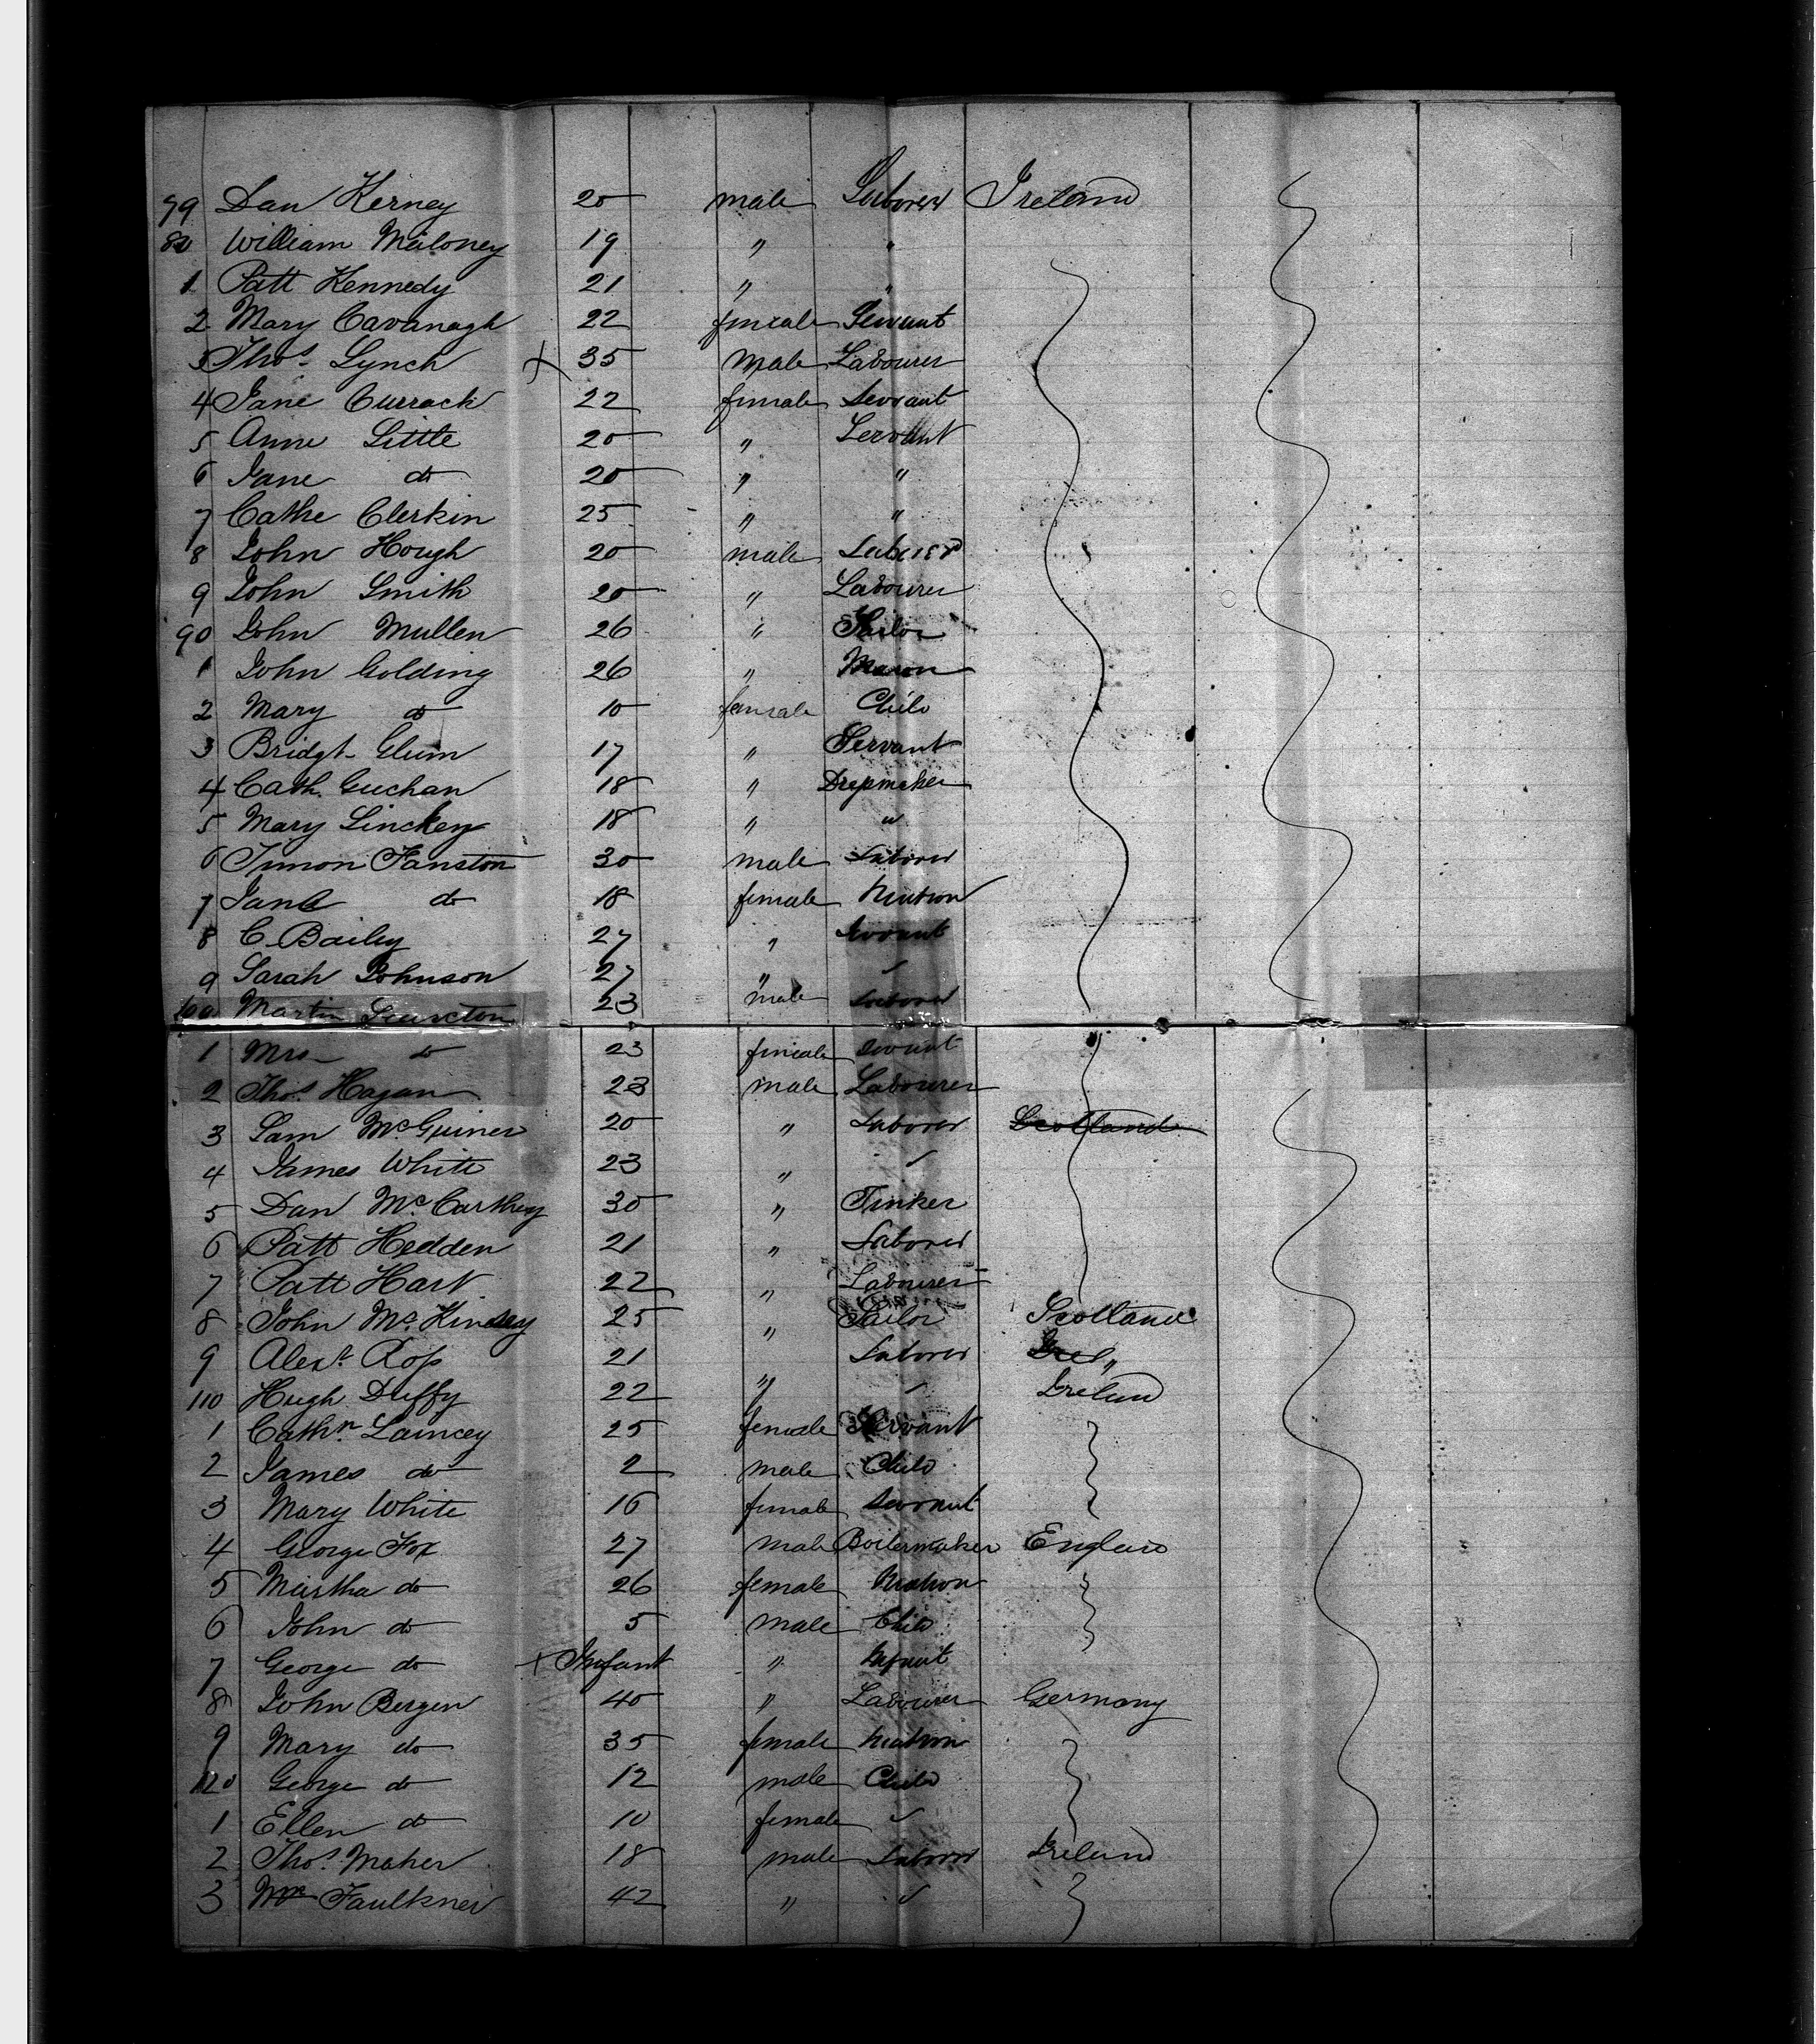 79 Dan Kerney 20 male Laborer Ireland
80 William Maloney 19 " "
1 Patt Kennedy 21 " "
2 Mary Cavanagh 22 female Servant
3 Thos. Lynch X 35 male Labourer
4 Jane Currack 22 female Servant
5 Anne Little 20 " Servant
6 Jane do 20 " "
7 Cathe Clerkin 25 " "
8 John Hough 20 male Laborer
9 John Smith 20 " Labourer
90 John Mullen 26 " Sailor
1 John Golding 26 " Mason
2 Mary do 10 female Child
3 Bridgt Glum 17 " Servant
4 Cath. Guchan 18 " Dressmaker
5 Mary Linckey 18 " "
6 Simon Fanston 30 male Laborer
7 Jane do 18 female Matron
8 C. Bailey 27 " Servant
9 Sarah Johnson 27 " "
100 Martin 23 male Laborer
1 Mrs do 23 female Servant
2 Thos. Hagan 23 male Labourer
3 Sam McGuiner 20 " Laborer Scotland
4 James White 23 " "
5 Dan McCarthy 30 " Tinker
6 Patt Hedden 21 " Laborer
7 Patt Hart 22 " Labourer
8 John Mc. 25 " Sailor Scotland
9 Alexr. Ross 21 " Laborer "
110 Hugh Duffy 22 " " Ireland
1 Cathn. Lamcey 25 female Servant
2 James do 2 male Child
3 Mary White 16 female Servant
4 George Fox 27 male Boilermaker England
5 Martha do 26 female Matron
6 John do 5 male Child
7 George do X Infant " Infant
8 John Bergen 40 " Labourer Germany
9 Mary do 35 female Matron
120 George do 12 male Child
1 Ellen do 10 female "
2 Thos. Maher 18 male Laborer Ireland
3 Wm Faulkner 42 " "